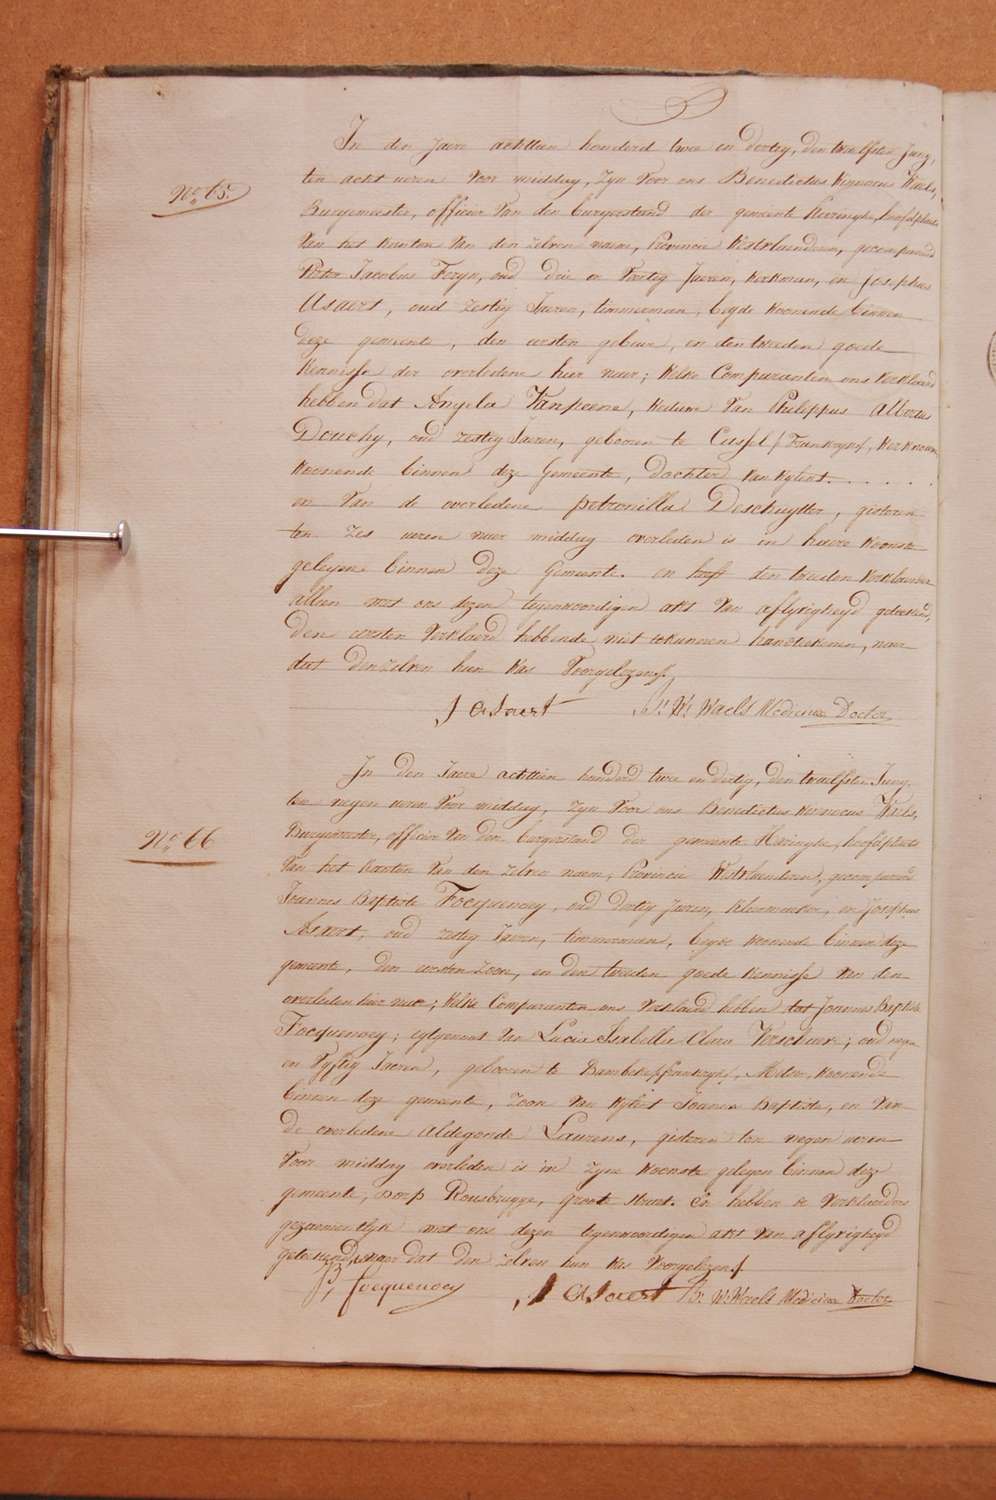 No. 65.
In den Jaere achttien honderd twee en dertig, den twaelfsten Juny,
ten acht ueren voor middag, zyn voor ons Benedictus Winnocus Waels,
Burgemeester, officier van den burgerstand der gemeente Haringhe, hoofdplaets
van het kanton van den zelven naem, Provincie Westvlaenderen, gecompareerd
Pieter Jacobus Feryn, oud drie en veertig Jaeren, werkman, en Josephus
Asaert, oud zestig Jaeren, timmerman, beyde woonende binnen
deze gemeente, den eersten gebuer, en den tweeden goede
kennisse der overledene hier naer; welke Comparanten ons verklaerd
hebben dat Angela Vanpeene, weduwe van Philippus Albertus
Douchy, oud zestig Jaeren, geboren te Cassel / Frankryk /, werkvrouw
woonende binnen deze Gemeente, dochter van wylent . . . . . .
en van de overledene petronilla Deschuytter, gisteren
ten zes ueren naer middag overleden is in haere woonste
gelegen binnen deze Gemeente. en heeft den tweeden verklaerder
alleen met ons dezen tegenwoordigen akt van aflyvigheyd geteekend,
den eersten verklaerd hebbende niet te kunnen handteekenen, naer
dat den zelven hun was voorgelezen /.
J Asaert B: W: Waels Medicinae Doctor
No. 66
In den Jaere achttien honderd twee en dertig, den twaelfsten Juny
ten negen ueren voor middag, zyn voor ons Benedictus Winnocus Waels,
Burgemeester, officier van den burgerstand der gemeente Haringhe, hoofdplaets
van het kanton van den zelven naem, Provincie Westvlaenderen, gecompareerd
Joannes Baptiste Focquenoey, oud dertig Jaeren, kleermaeker, en Josephus
Asaert, oud zestig Jaeren, timmerman, beyde woonende binnen deze
gemeente, den eersten zoon, en den tweeden goede kennisse van den
overleden hier naer; welke Comparanten ons verklaerd hebben dat Joannes Baptiste
Focquenoey; egtgenoot van Lucia Isabella Clara Verschave; oud negen
en vyftig Jaeren, geboren te Bambeke / frankryk /, woonende
binnen deze gemeente, zoon van wylent Joannes Baptiste, en van
de overledene Aldegonde Laurens, gisteren ten negen ueren
voor middag overleden is in zyne woonste gelegen binnen deze
gemeente, dorp Rousbrugge, groote straet. en hebben de verklaerders
gezaementlyk met ons dezen tegenwoordigen akt van aflyvigheyd
geteekend, naer dat den zelven hun was voorgelezen /.
JB focquenoey J Asaert B: W: Waels Medicinae Doctor